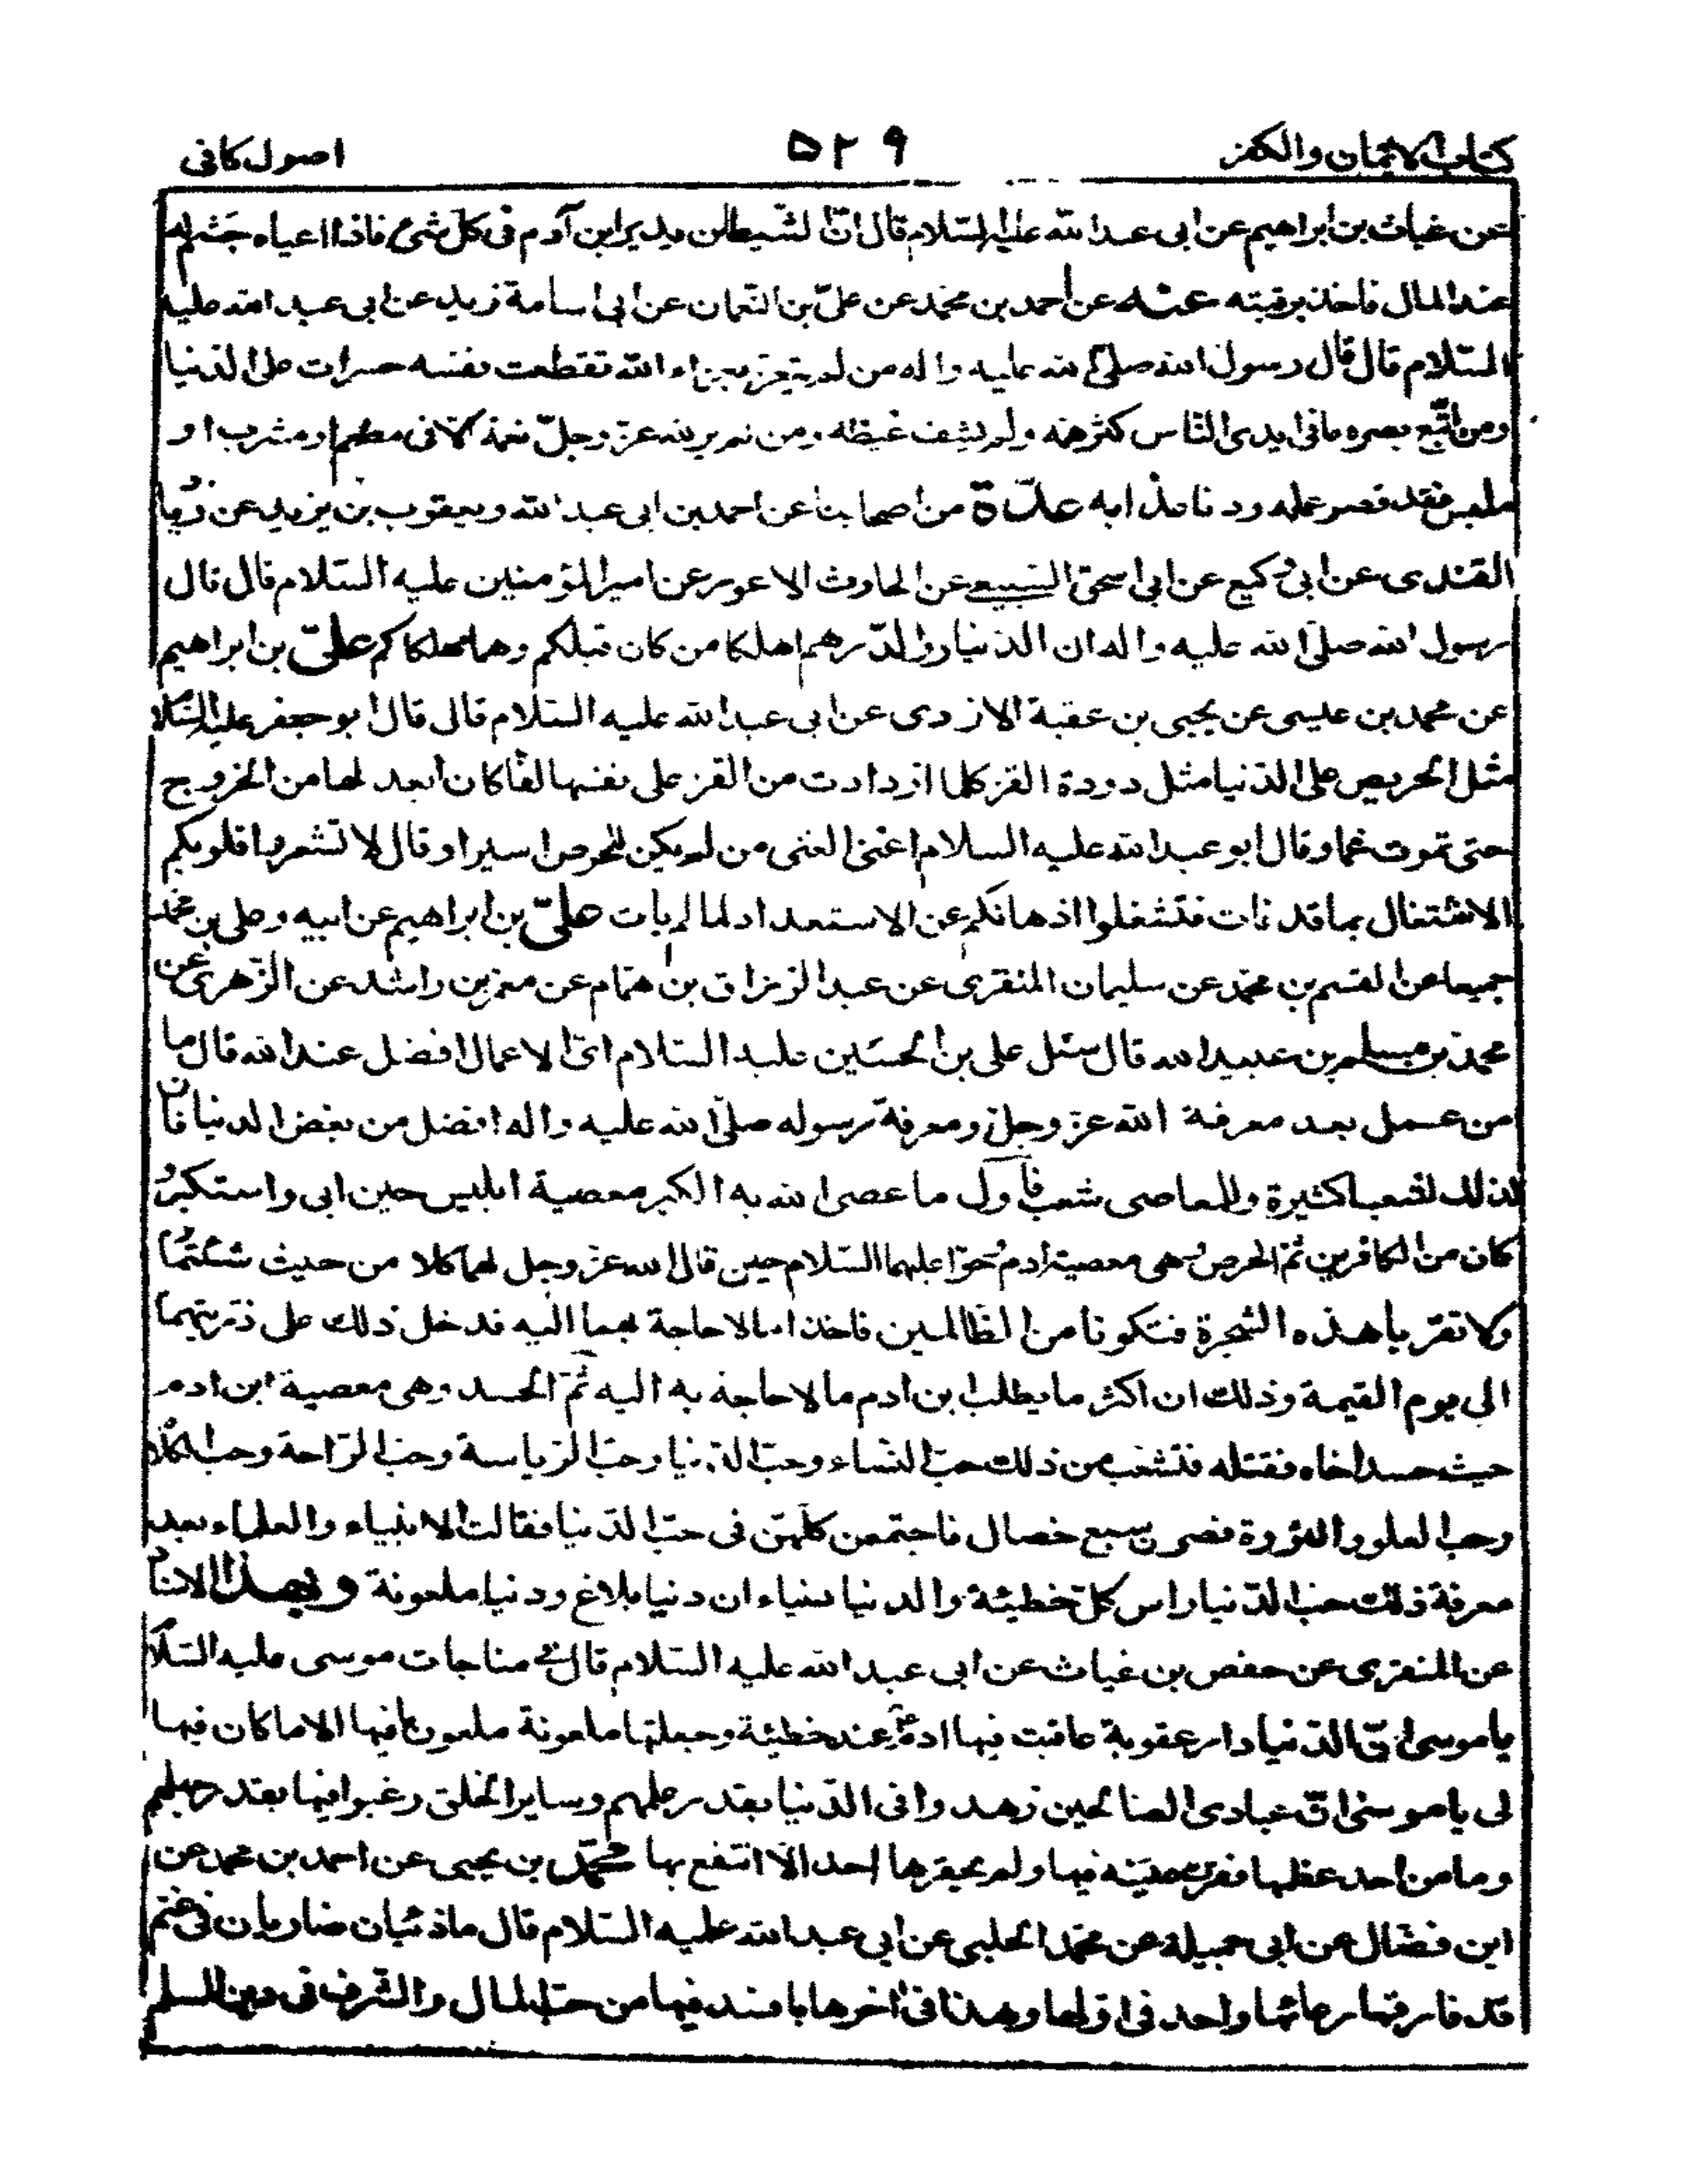 كتاب الايمان والكفر ٥٢٩ اصول كافى
عن غياث بن ابراهيم عن ابى عبد الله عليه السّلام قال انّ الشّيطان يدير ابن آدم فى كلّ شئ فاذا اعياه جَثم له
عند المال فاخذ برقبته عنه عن احمد بن محمّد عن علىّ بن النّعمان عن ابى اسامة زيد عن ابى عبد الله عليه
السّلام قال قال رسول الله صلّى الله عليه واله من لم يتعزّ بعزاء الله تقطعت نفسه حسرات على الدّنيا
ومن اتّبع بصره ما فى ايدى النّاس كثر همّه ولم يشف غيظه ومن لم ير لله عزّ وجلّ نعمة الّا فى مطعم او مشرب او
ملبس فقد قصر عمله ودنا عذابه عدّة من اصحابنا عن احمد بن ابى عبد الله ويعقوب بن يزيد عن زياد
القندى عن ابى وكيع عن ابى اسحق السّبيعى عن الحارث الاعور عن امير المؤمنين عليه السّلام قال قال
رسول الله صلّى الله عليه واله ان الدّنيار والدّرهم اهلكا من كان قبلكم وهما مهلكاكم علىّ بن ابراهيم
عن محمد بن عيسى عن يحيى بن عقبة الازدى عن ابى عبد الله عليه السّلام قال قال ابو جعفر عليه السّلا
مثل الحريص على الدّنيا مثل دودة القز كلما ازدادت من القز على نفسها لفّا كان ابعد لها من الخروج
حتى تموت غما وقال ابو عبد الله عليه السلام اغنى الغنى من لم يكن للحرص اسيرا وقال لا تشعروا قلوبكم
الاشتغال بما قد فات فتشغلوا اذهانكم عن الاستعداد لما لم يات علىّ بن ابراهيم عن ابيه وعلى بن محمّد
جميعا عن القسم بن محمّد عن سليمان المنقرى عن عبد الرّزاق بن همّام عن معمر بن راشد عن الزّهرى عن
محمد بن مسلم بن عبيد الله قال سئل على بن الحسَين عليه السّلام اىّ الاعمال افضل عند الله قال ما
من عمل بعد معرفة الله عزّ وجلّ ومعرفة رسوله صلّى الله عليه واله افضل من بغض الدنيا فان
لذلك لشعبا كثيرة وللمعاصى شعب فأول ما عصى الله به الكبر معصية ابليس حين ابى واستكبر و
كان من الكافرين ثمّ الحرص وهى معصية ادم وحوّا عليهما السّلام حين قال الله عزّ وجل لهما كلا من حيث شئتما
ولا تقربا هذه الشّجرة فتكونا من الظّالمين فاخذا ما لا حاجة بهما اليه فدخل ذلك على ذرّيتهما
الى يوم القيمة وذلك ان اكثر ما يطلب ابن ادم ما لا حاجة به اليه ثمّ الحسد وهى معصية ابن ادم
حيث حسد اخاه فقتله فتشعّب من ذلك حبّ النّساء وحبّ الدّنيا وحبّ الرّياسة وحبّ الرّاحة وحبّ الكلام
وحب العلو والثّروة فصرن سبع خصال فاجتمعن كلّهنّ فى حبّ الدّنيا فقالت الانبياء والعلماء بعد
معرفة ذلك حبّ الدّنيا راس كلّ خطيئة والدنيا دنياء ان دنيا بلاغ ودنيا ملعونة وبهذا الاسناد
عن المنقرى عن حفص بن غياث عن ابى عبد الله عليه السّلام قال فى مناجات موسى عليه السّلا
يا موسى انّ الدّنيا دار عقوبة عاقبت فيها ادم عند خطيئة وجعلتها ملعونة ملعون ما فيها الا ما كان فيها
لى يا موسى انّ عبادى الصّالحين زهدوا فى الدّنيا بقدر علمهم وساير الخلق رغبوا فيها بقدر جهلهم
وما من احد عظمها فقرت عينه فيها ولم يحقرها احد الّا انتفع بها محمّد بن يحيى عن احمد بن محمد عن
ابن فضّال عن ابى جميلة عن محمّد الحلبى عن ابى عبد الله عليه السّلام قال ما ذئبان ضاريان فى غنم
قد فارقها رعائها واحد فى اوّلها وهذا فى اخرها بافسد فيها من حبّ المال والشّرف فى دين المسلم